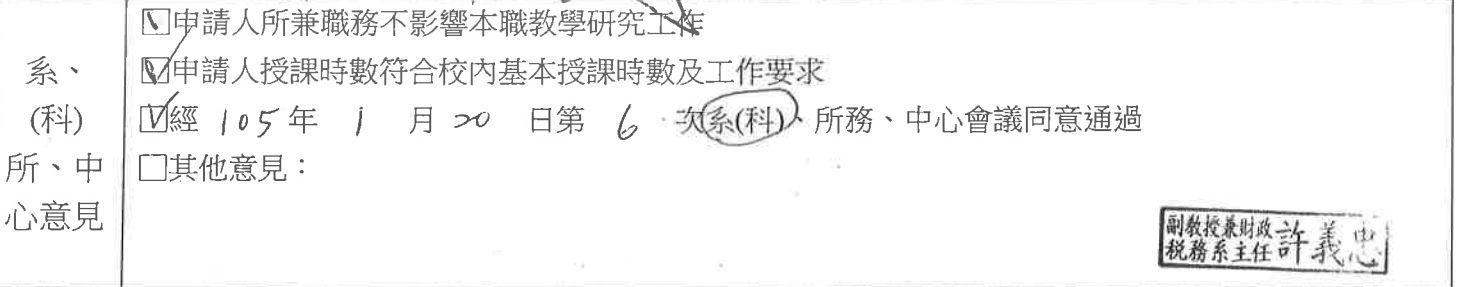 系、
(科)
所、中
心意見
☑申請人所兼職務不影響本職教學研究工作
☑申請人授課時數符合校內基本授課時數及工作要求
☑經 105 年 1 月 20 日第 6 次系(科)、所務、中心會議同意通過
□其他意見：
副教授兼財政
稅務系主任 許義忠